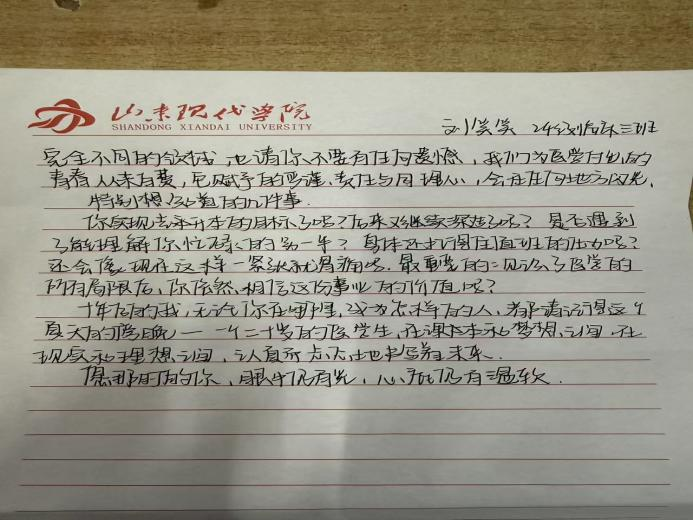 山东现代学院
SHANDONG XIANDAI UNIVERSITY
24级临床三班
完全不同的领域 也请你不要有任何遗憾，我们为医学付出的
青春从未白费，它赋予的严谨、责任与同理心，会在任何地方闪光。
特别想知道的几件事
你实现去年升本的目标了吗？后来又继续深造了吗？是否遇到
了能理解你忙碌的另一半？身体还扛得住值班的压力吗？
还会像现在这样一紧张就胃痛吗。最重要的：见证了医学的
所有局限后，你依然相信这份事业的价值吗？
十年后的我，无论你在哪里，成为怎样的人，都请记得这个
夏天的傍晚——一个二十岁的医学生，在课本和梦想之间，在
现实和理想之间，认真所点点地书写着未来。
愿那时的你，眼中仍有光，心底仍有温软.